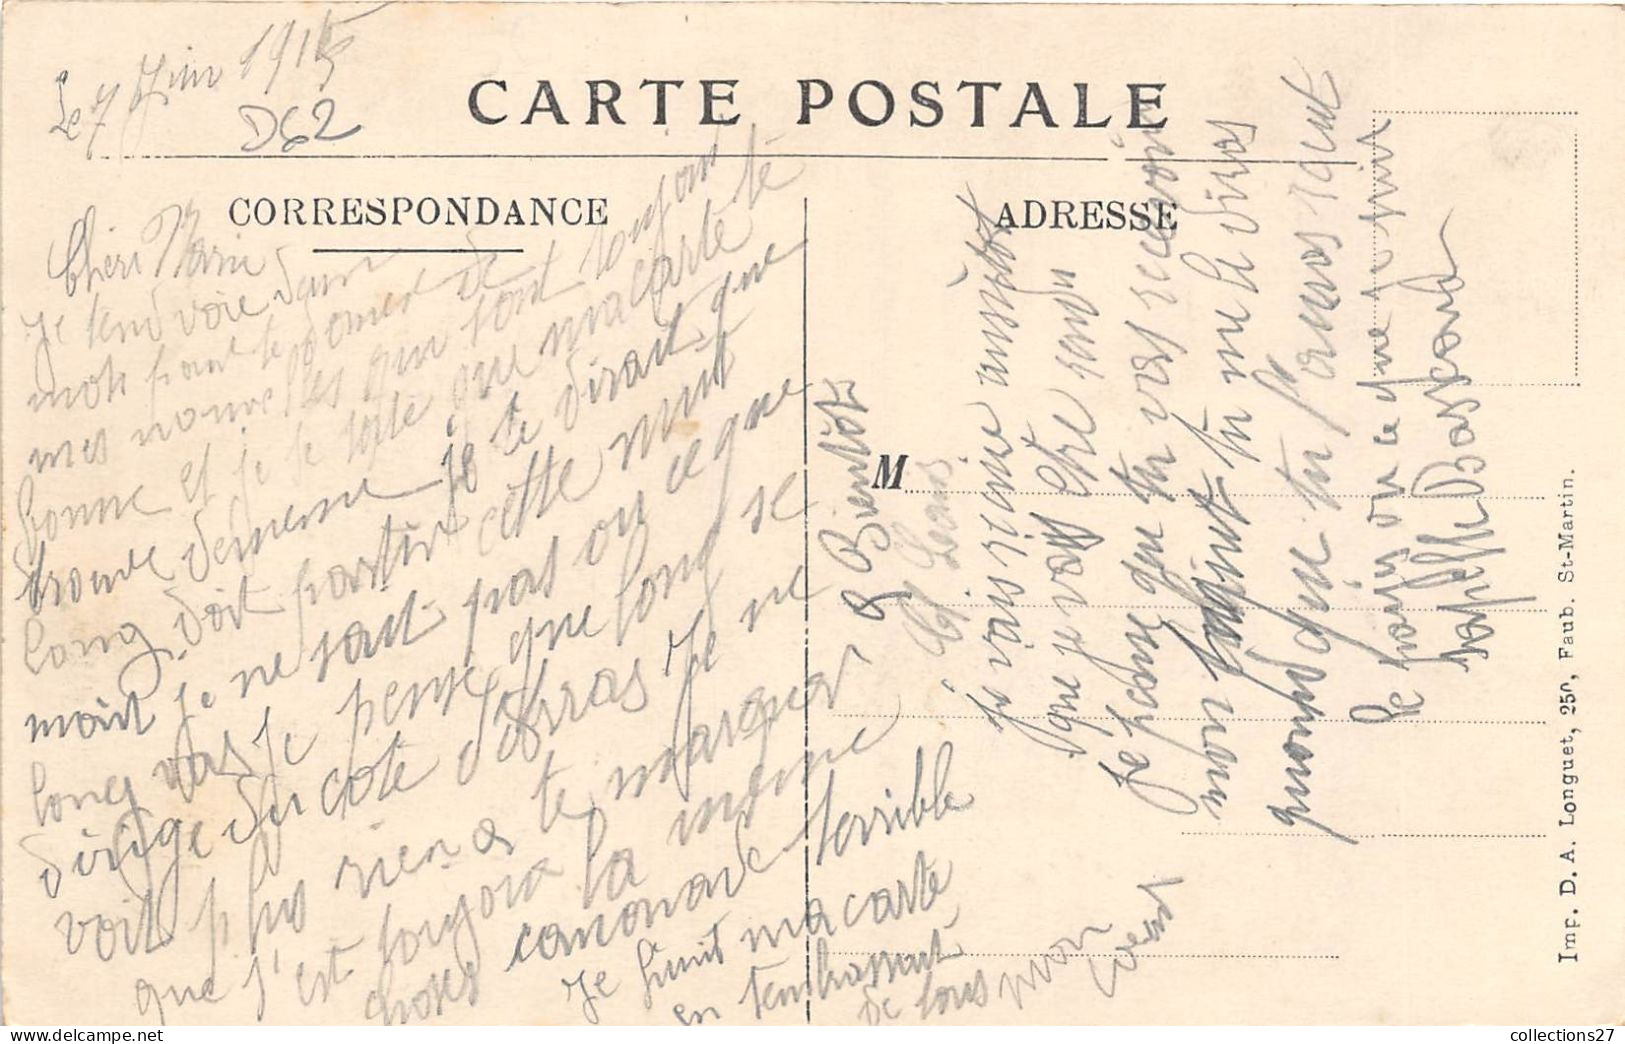 Le 7 Juin 1915
D62
CARTE POSTALE
CORRESPONDANCE
ADRESSE
Chéri Marie
Je tend voie deux
mots pour te donner de
mes nouvelles qui sont toujour
bonne et je souete que ma carte te
trouve de meme je te dirait que
long doit partir cette nuit
mait je ne sait pas ou ce que
long vas je pense que long se
dirige du coté d'Arras Je ne
voit plus rien a te marquer
que s'est toujour la meme
choses canonade terrible
Je finit ma carte
en tembrassant
de tous mon
coeur
a Bientot
M
je vais ecrire aussitot
que je vais etre rendu
Je pense que tu vas recevoir
mon tu me le diras
quand que tu
le
Imp. D. A. Longuet, 250, Faub. St-Martin.
collections27